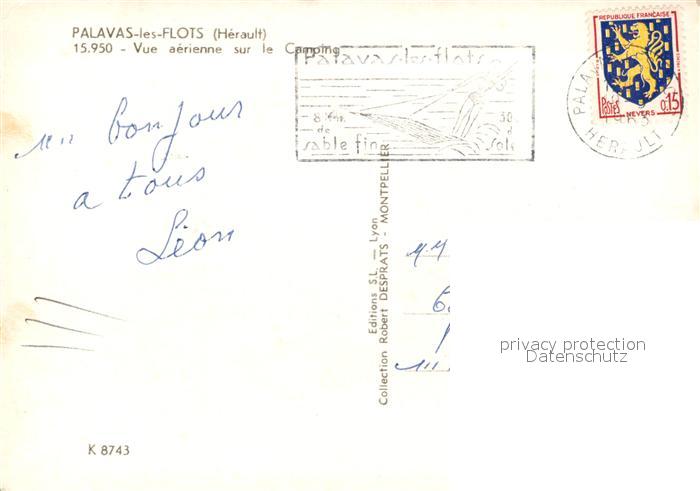 PALAVAS-les-FLOTS (Hérault)
15.950 - Vue aérienne sur le Camping
Palavas-les-flots
8 Km.
de
sable fin
soleil
REPUBLIQUE FRANÇAISE
Postes
0,15
NEVERS
PALA
HERAULT
un bonjour
a tous
Léon
Editions S.L. — Lyon
Collection Robert DESPRATS - MONTPELLIER
M.M
privacy protection
Datenschutz
K 8743